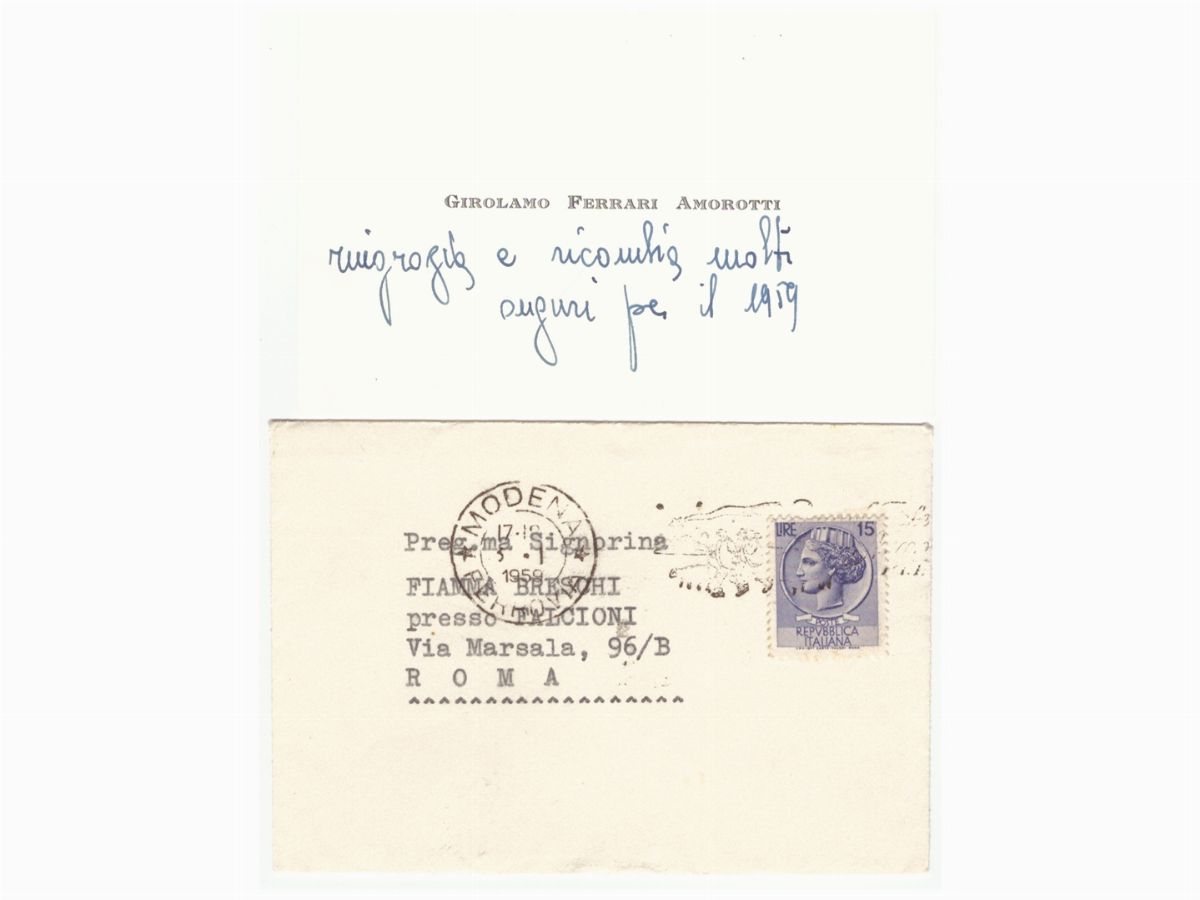 GIROLAMO FERRARI AMOROTTI
ringrazia e ricambia molti
auguri per il 1959
MODENA
17-18
5.1
1959
FERROVIA
LIRE 15
POSTE
REPVBBLICA
ITALIANA
Preg.ma Signorina
FIAMMA BRESCHI
presso FALCIONI
Via Marsala, 96/B
R O M A
^^^^^^^^^^^^^^^^^^